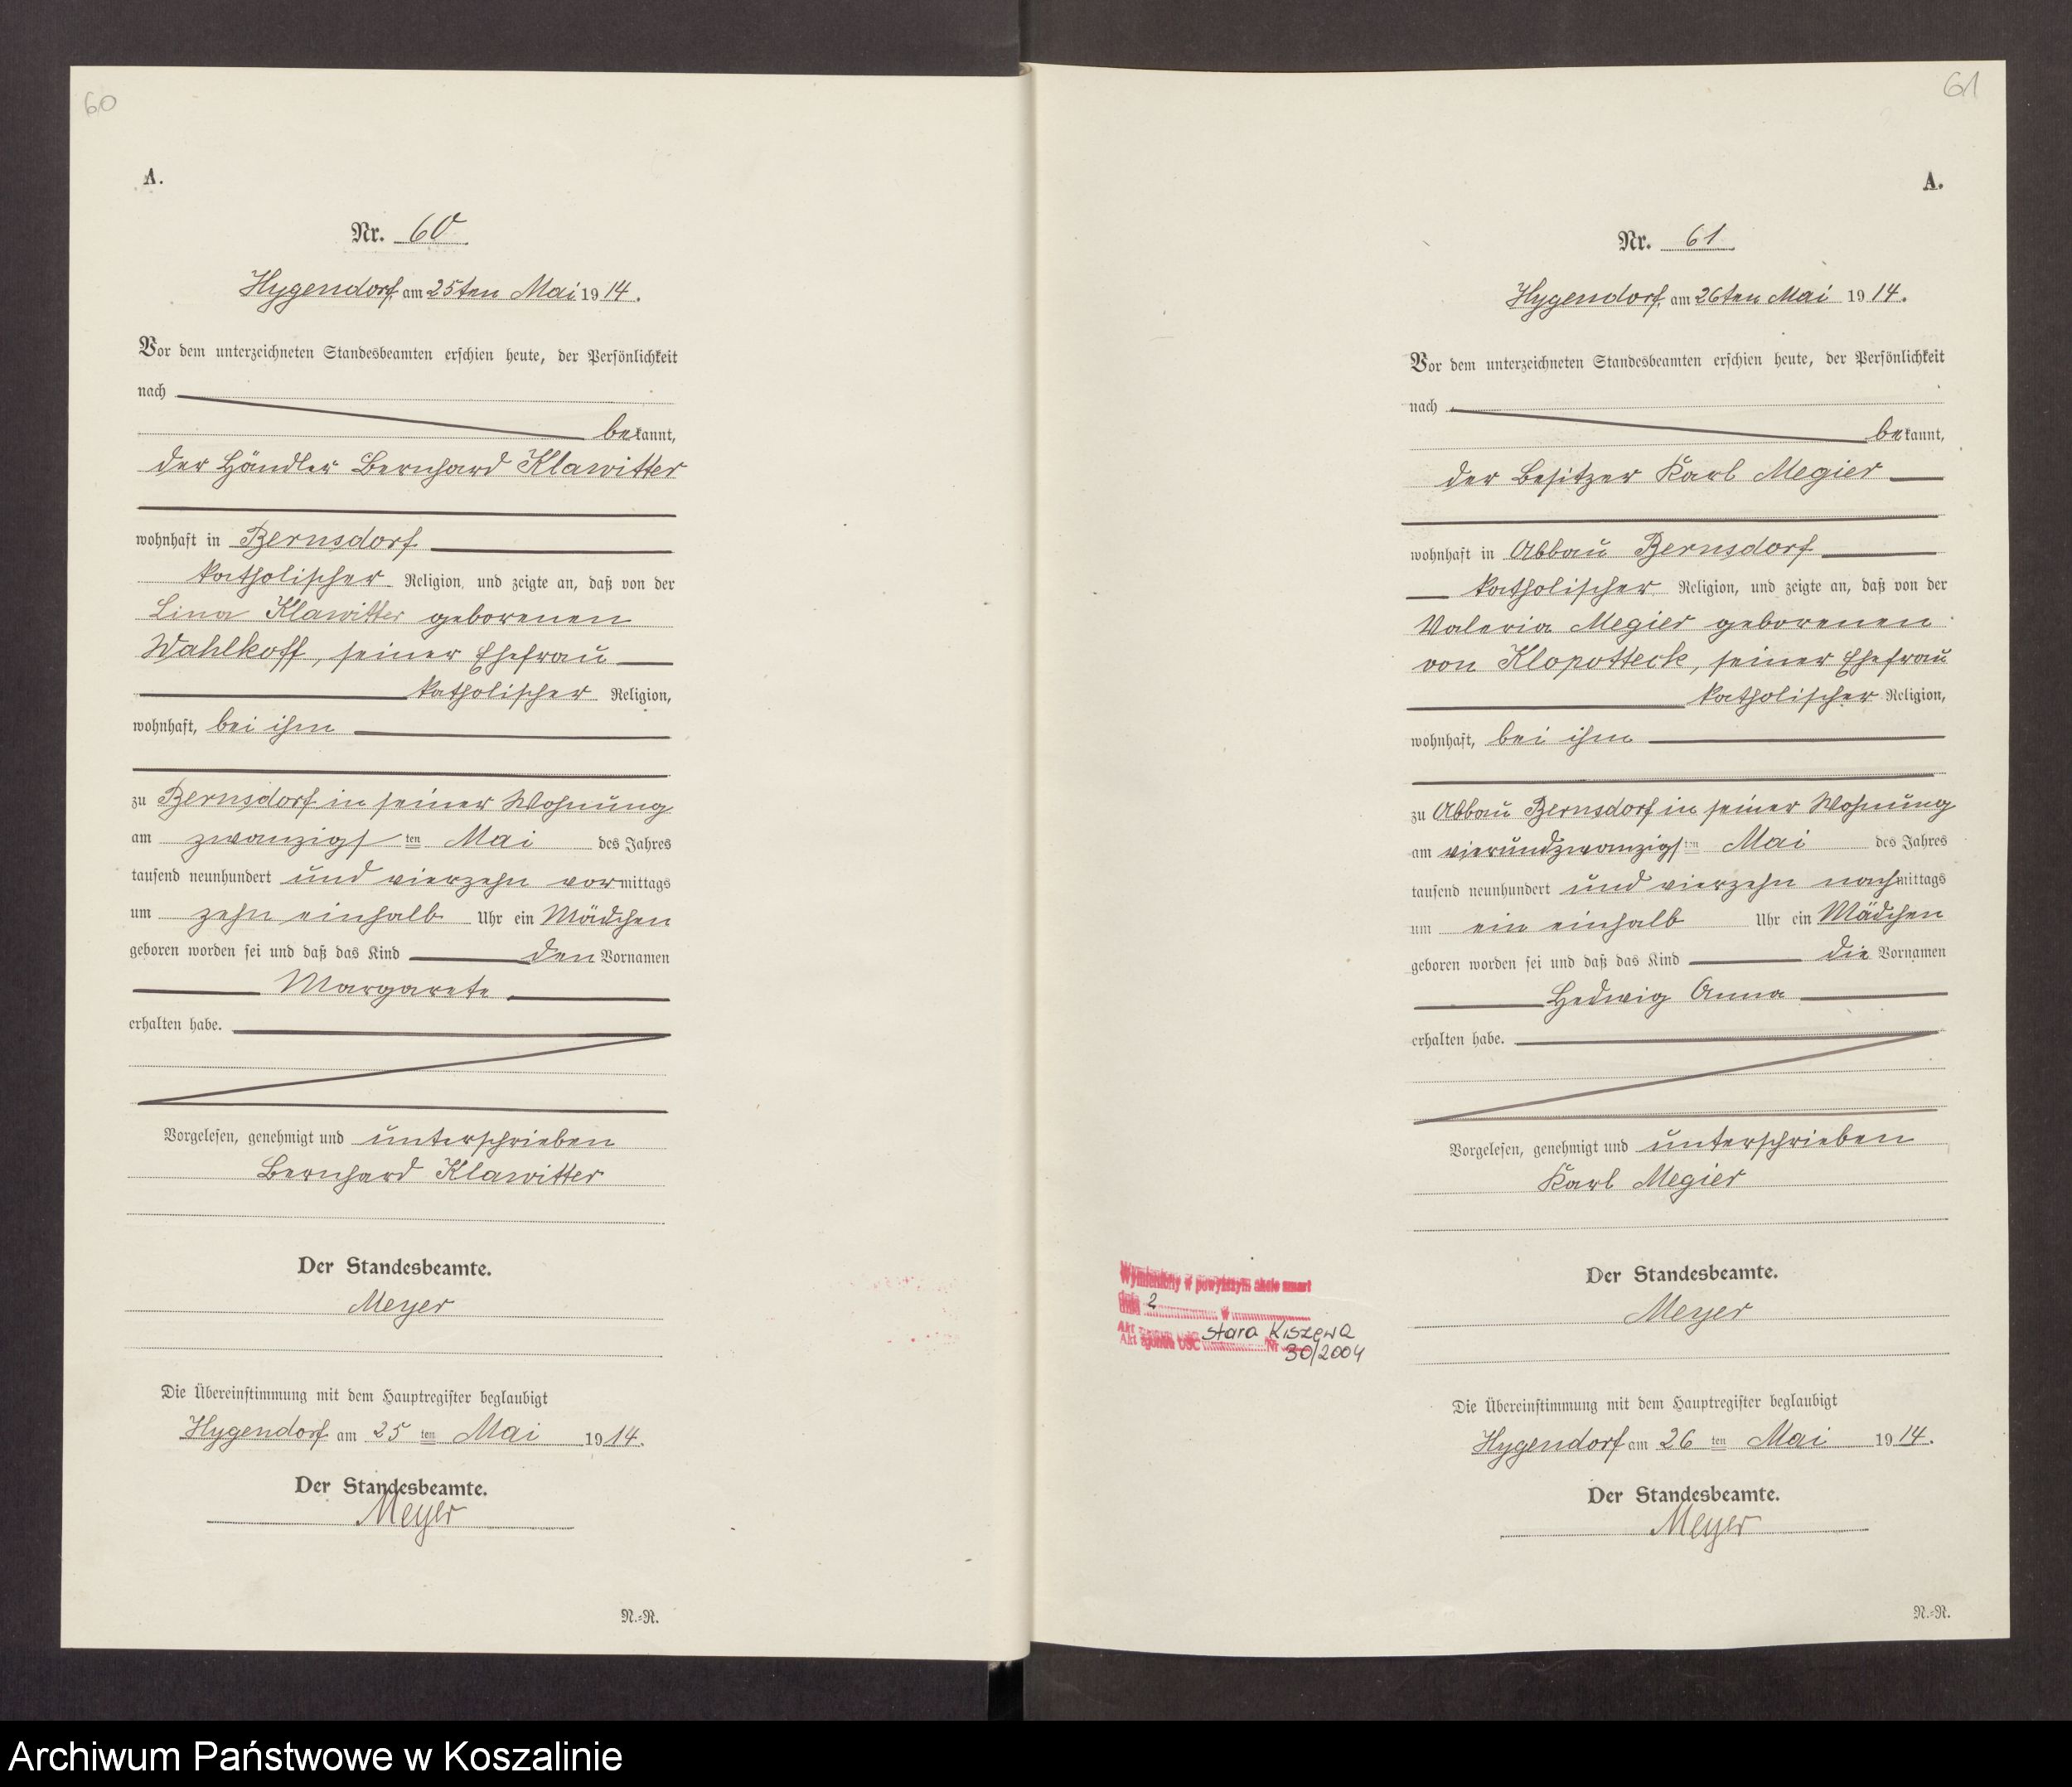 60
A.
Nr. 60
Hygendorf, am 25ten Mai 1914.
Vor dem unterzeichneten Standesbeamten erschien heute, der Persönlichkeit
nach
bekannt,
der Händler Bernhard Klawitter
wohnhaft in Bernsdorf
katholischer Religion, und zeigte an, daß von der
Lina Klawitter geborenen
Wahlkoff, seiner Ehefrau
katholischer Religion,
wohnhaft, bei ihm
zu Bernsdorf in seiner Wohnung
am zwanzigsten Mai des Jahres
tausend neunhundert und vierzehn vormittags
um zehn einhalb Uhr ein Mädchen
geboren worden sei und daß das Kind den Vornamen
Margarete
erhalten habe.
Vorgelesen, genehmigt und unterschrieben
Bernhard Klawitter
Der Standesbeamte.
Meyer
Die Übereinstimmung mit dem Hauptregister beglaubigt
Hygendorf am 25 ten Mai 1914.
Der Standesbeamte.
Meyer
N.-R.
61
A.
Nr. 61
Hygendorf, am 26ten Mai 1914.
Vor dem unterzeichneten Standesbeamten erschien heute, der Persönlichkeit
nach
bekannt,
der Besitzer Karl Megier
wohnhaft in Abbau Bernsdorf
katholischer Religion, und zeigte an, daß von der
Valeria Megier geborenen
von Klopotteck, seiner Ehefrau
katholischer Religion,
wohnhaft, bei ihm
zu Abbau Bernsdorf in seiner Wohnung
am vierundzwanzigsten Mai des Jahres
tausend neunhundert und vierzehn nachmittags
um ein einhalb Uhr ein Mädchen
geboren worden sei und daß das Kind die Vornamen
Hedwig Anna
erhalten habe.
Vorgelesen, genehmigt und unterschrieben
Karl Megier
Der Standesbeamte.
Meyer
Wymieniony w powyższym akcie zmarł
dnia 2 w
Akt zgonu USC Stara Kiszewa
Nr 30/2004
Die Übereinstimmung mit dem Hauptregister beglaubigt
Hygendorf am 26 ten Mai 1914.
Der Standesbeamte.
Meyer
N.-R.
Archiwum Państwowe w Koszalinie